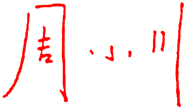 周小川